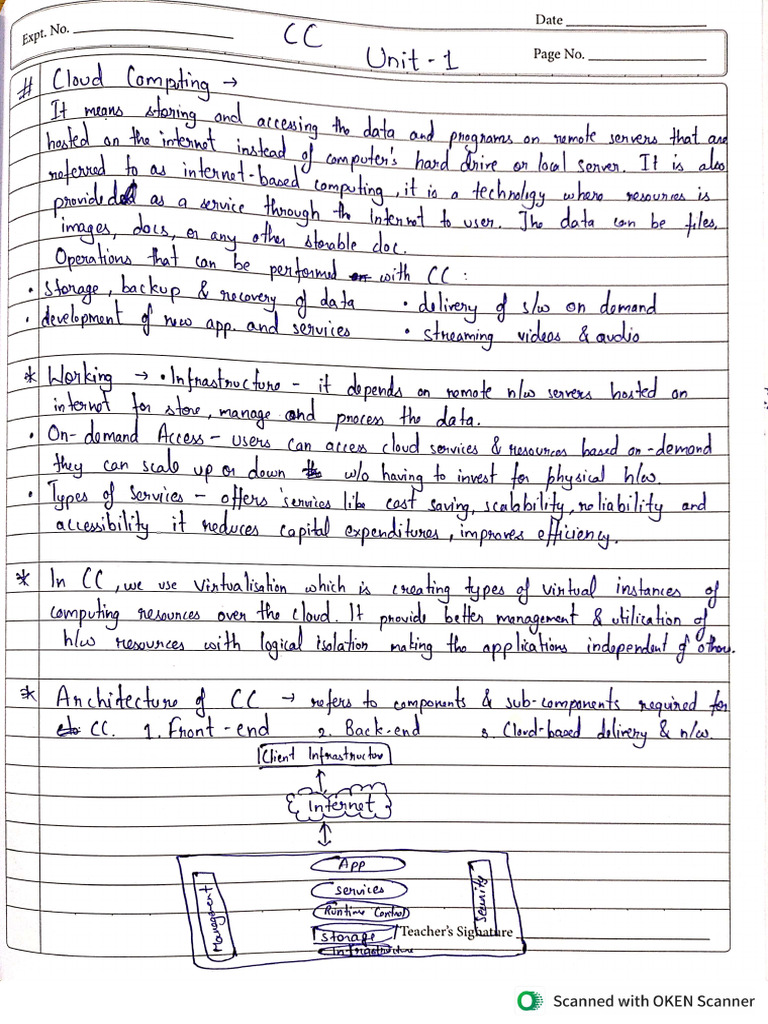 Expt. No.
Date
CC
Unit - 1
Page No.
# Cloud Computing →
It means storing and accessing the data and programs on remote servers that are
hosted on the internet instead of computer's hard drive or local server. It is also
referred to as internet-based computing, it is a technology where resources is
provided as a service through the Internet to user. The data can be files,
images, docs, or any other storable doc.
Operations that can be performed with CC :
• Storage, backup & recovery of data • delivery of s/w on demand
• development of new app. and services • streaming videos & audio
* Working → • Infrastructure - it depends on remote n/w servers hosted on
internet for store, manage and process the data.
• On-demand Access - users can access cloud services & resources based on-demand
they can scale up or down w/o having to invest for physical h/w.
• Types of Services - offers services like cost saving, scalability, reliability and
accessibility it reduces capital expenditures, improves efficiency.
* In CC, we use Virtualisation which is creating types of virtual instances of
computing resources over the cloud. It provide better management & utilication of
h/w resources with logical isolation making the applications independent of others.
* Architecture of CC → refers to components & sub-components required for
CC. 1. Front-end 2. Back-end 3. Cloud-based delivery & n/w.
Client Infrastructor
Internet
App
Services
Runtime Control
Storage
Infrastructure
Management
Security
Teacher's Signature
Scanned with OKEN Scanner